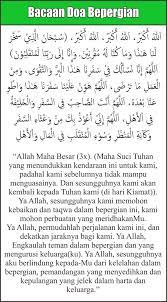 Bacaan Doa Bepergian
اللهُ أَكْبَرُ، اللهُ أَكْبَرُ، اللهُ أَكْبَرُ، (سُبْحَانَ الَّذِي سَخَّرَ
لَنَا هَذَا وَمَا كُنَّا لَهُ مُقْرِنِينَ. وَإِنَّا إِلَى رَبِّنَا لَمُنْقَلِبُونَ)
اللَّهُمَّ إِنَّا نَسْأَلُكَ فِي سَفَرِنَا هَذَا الْبِرَّ وَالتَّقْوَى،
وَمِنَ الْعَمَلِ مَا تَرْضَى، اللَّهُمَّ هَوِّنْ عَلَيْنَا سَفَرَنَا هَذَا
وَاطْوِ عَنَّا بُعْدَهُ، اللَّهُمَّ أَنْتَ الصَّاحِبُ فِي السَّفَرِ
وَالْخَلِيفَةُ فِي الْأَهْلِ، اللَّهُمَّ إِنِّي أَعُوذُ بِكَ مِنْ وَعْثَاءِ السَّفَرِ
وَكَآبَةِ الْمَنْظَرِ وَسُوءِ الْمُنْقَلَبِ فِي الْمَالِ وَالْأَهْلِ.
"Allah Maha Besar (3x). (Maha Suci Tuhan
yang menundukkan kendaraan ini untuk kami,
padahal kami sebelumnya tidak mampu
menguasainya. Dan sesungguhnya kami akan
kembali kepada Tuhan kami (di hari Kiamat)).
Ya Allah, sesungguhnya kami memohon
kebaikan dan taqwa dalam bepergian ini, kami
mohon perbuatan yang meridhakanMu.
Ya Allah, permudahlah perjalanan kami ini, dan
dekatkan jaraknya bagi kami. Ya Allah,
Engkaulah teman dalam bepergian dan yang
mengurusi keluarga(ku). Ya Allah, sesungguhnya
aku berlindung kepada-Mu dari kelelahan dalam
bepergian, pemandangan yang menyedihkan dan
kepulangan yang jelek dalam harta dan
keluarga."